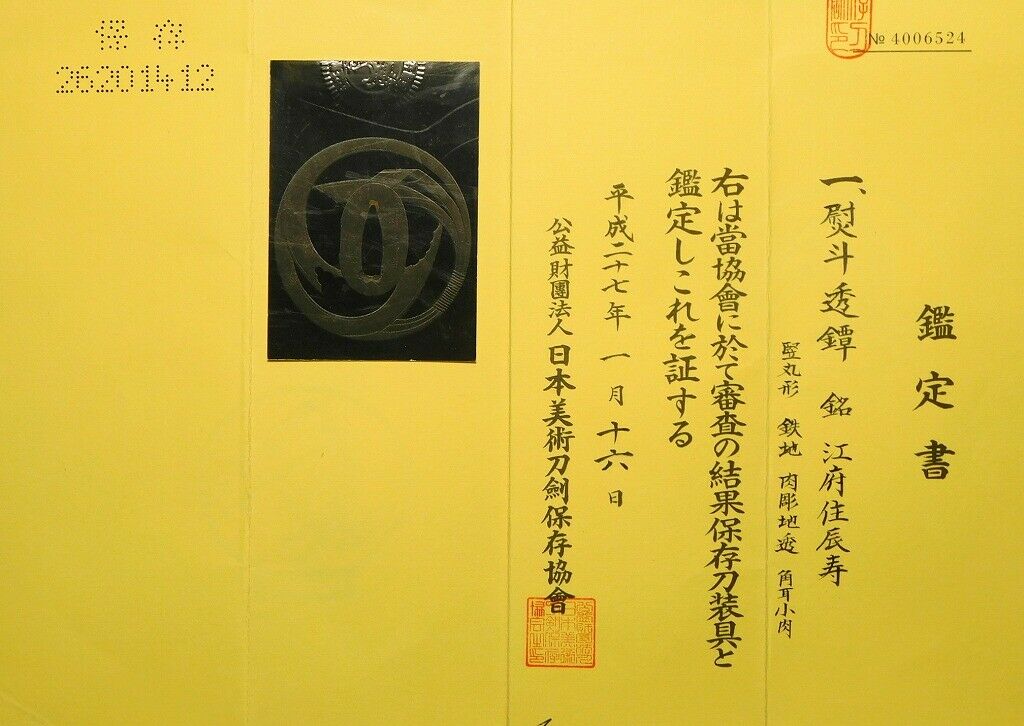 № 4006524
鑑定書
一、熨斗透鐔　銘　江府住辰寿
竪丸形　鉄地　肉彫地透　角耳小肉
右は當協會に於て審査の結果保存刀装具と
鑑定しこれを証する
平成二十七年　一月　十六日
公益財團法人　日本美術刀劍保存協會
保存
26201412